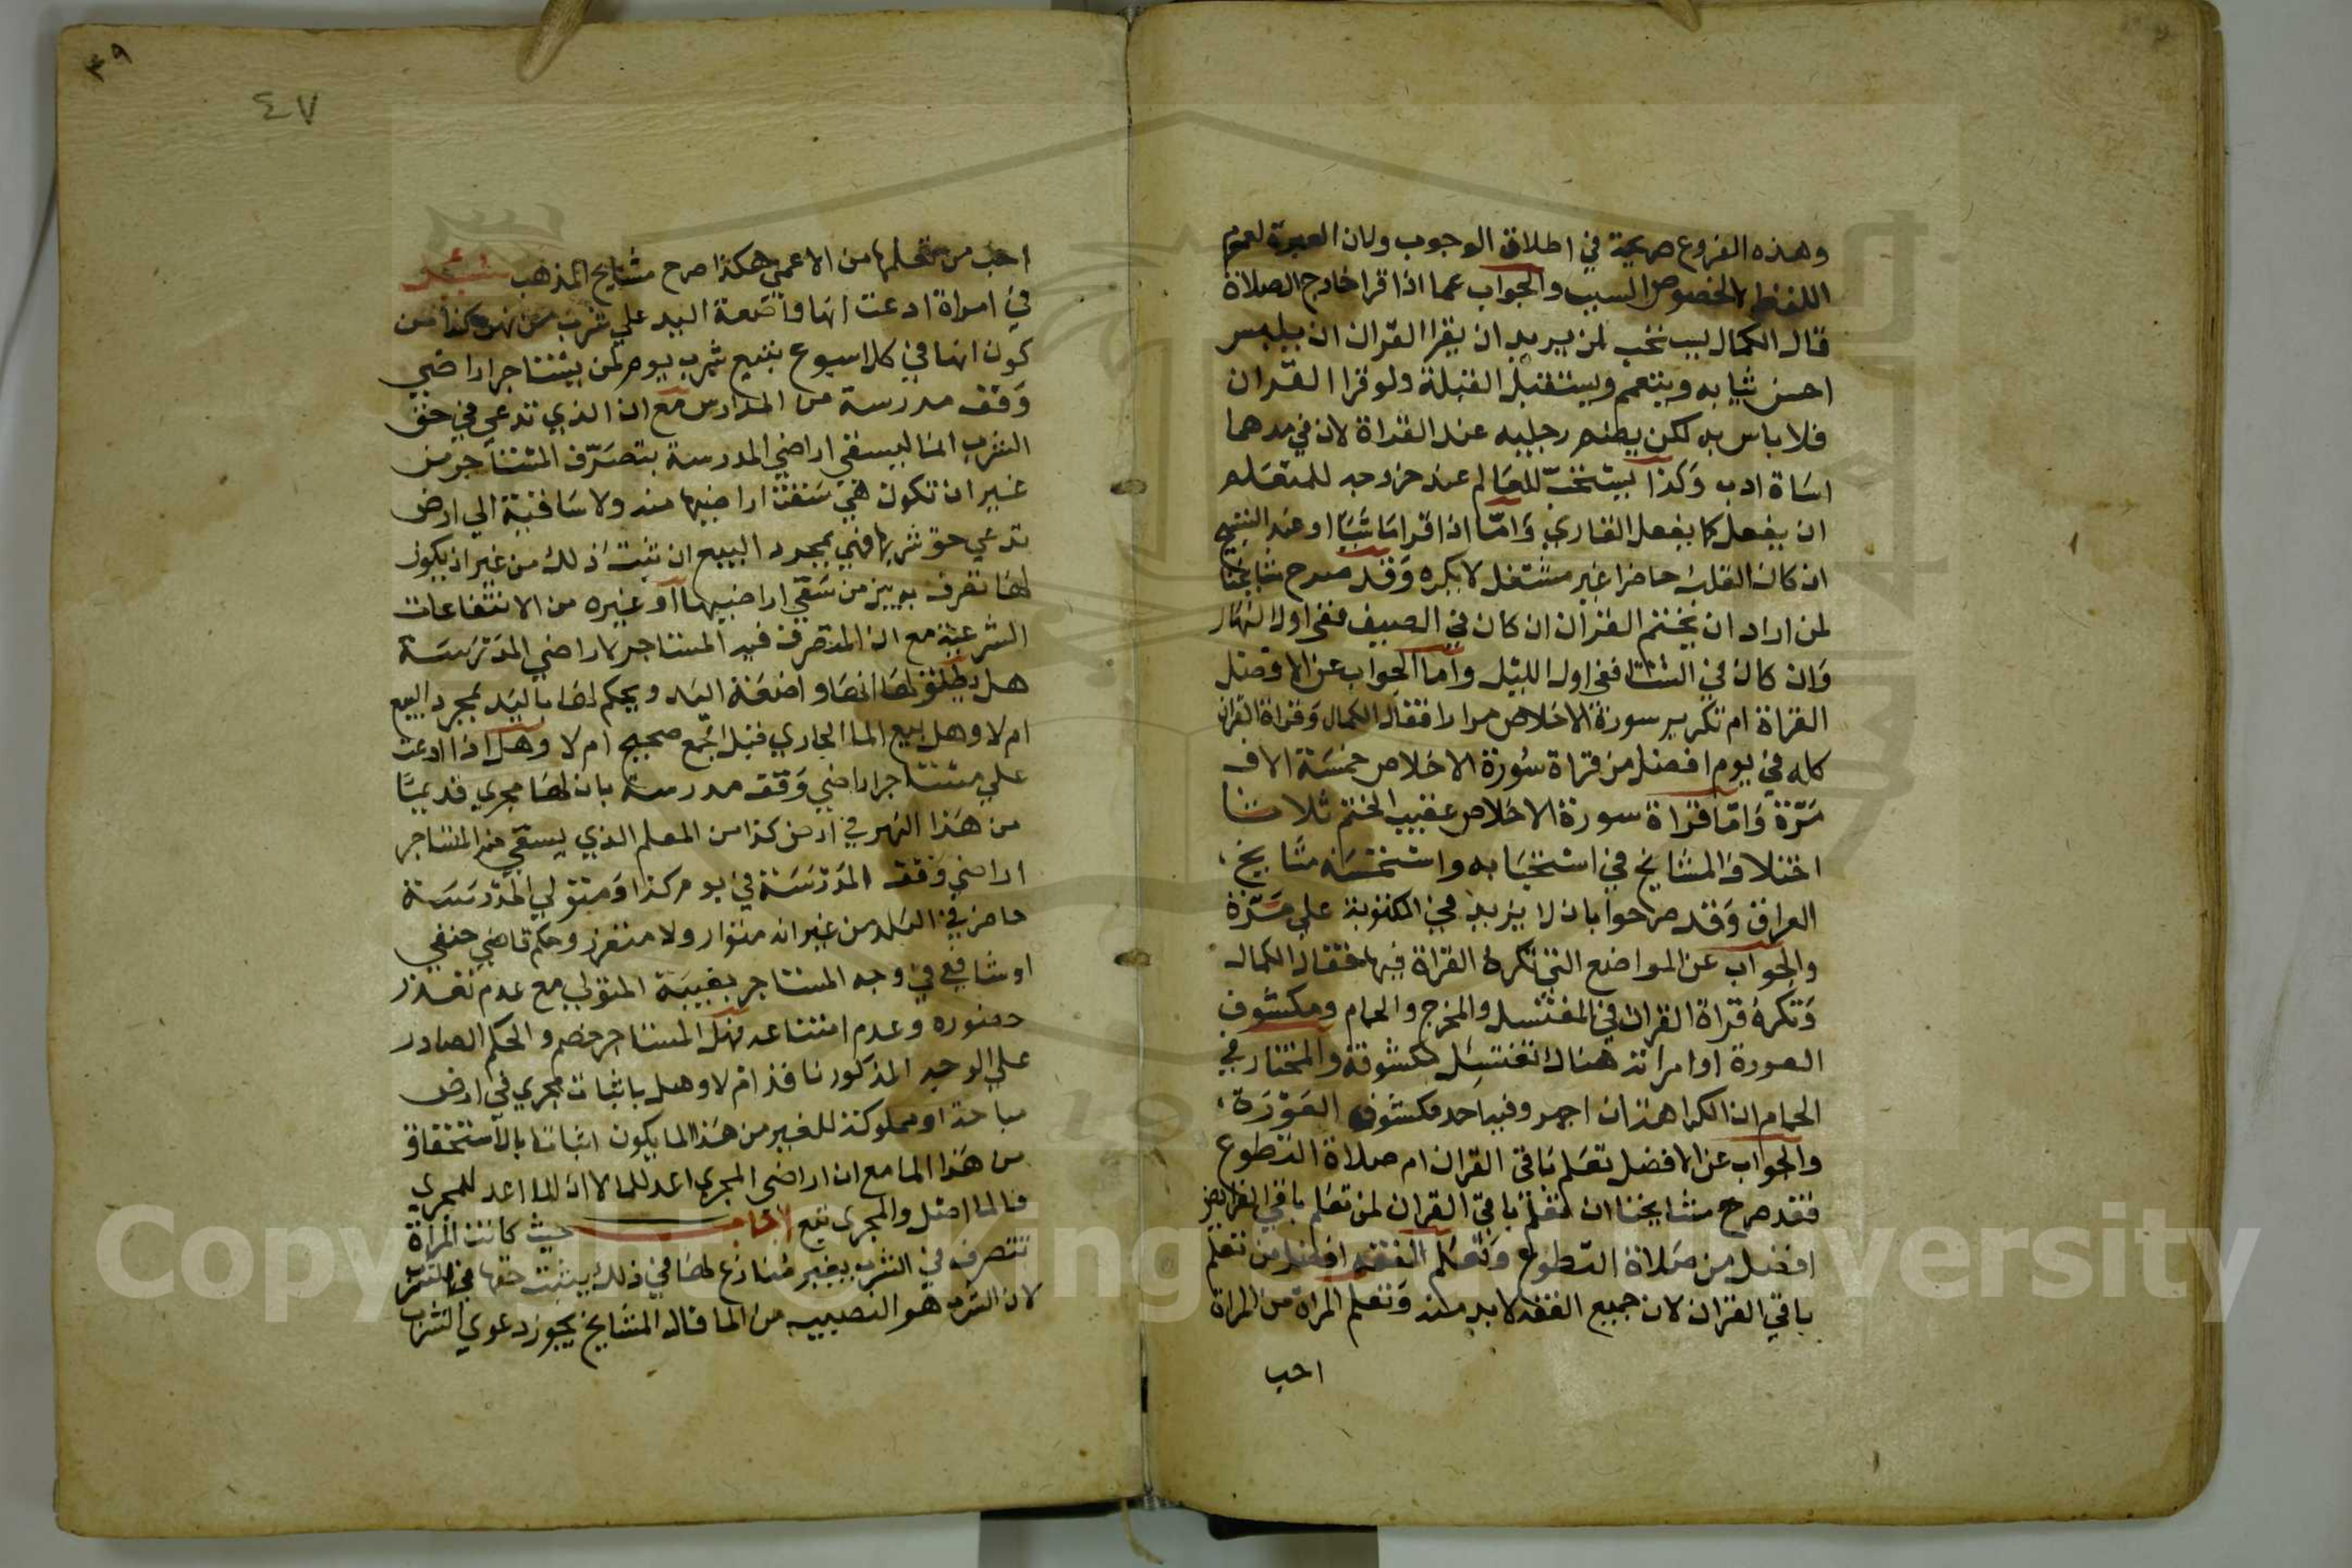 وهذه الفروع صريحة في اطلاق الوجوب ولان العبرة لعموم
اللفظ لا لخصوص السبب والجواب عما اذا قرا خارج الصلاة
قال الكمال يستحب لمن يريد ان يقرا القران ان يلبس
احسن ثيابه ويتعمم ويستقبل القبلة ولو قرا القران
فلا باس به لكن يضم رجليه عند القراة لان في مدهما
اساة ادب وكذا يستحب للعالم عند خروجه للمتعلم
ان يفعل كما يفعل القاري واما اذا قرا ماشيا او عند النسج
ان كان القلب حاضرا غير مشتغل لا يكره وقد صرح مشايخنا
لمن اراد ان يختم القران ان كان في الصيف ففي اول النهار
وان كان في الشتا ففي اول الليل واما الجواب عن الافضل
القراة ام تكرير سورة الاخلاص مرارا فقال الكمال وقراة القران
كله في يوم افضل من قراة سورة الاخلاص خمسة الاف
مرة واما قراة سورة الاخلاص عقيب الختم ثلاثا
اختلاف المشايخ في استحبابه واستحسنه مشايخ
العراق وقد صرحوا بان لا يزيد في المكتوبة علي مرة
والجواب عن المواضع التي تكره القراة فيها فقال الكمال
وتكره قراة القران في المغتسل والمخرج والحمام ومكشوف
العورة او امراته هناك تغتسل مكشوفة والمختار في
الحمام ان الكراهة ان اجهر وفيه احد مكشوف العورة
والجواب عن الافضل تعلم باقي القران ام صلاة التطوع
فقد صرح مشايخنا ان تعلم باقي القران لمن تعلم باقي الفرايض
افضل من صلاة التطوع وتعلم الفقه افضل من تعلم
باقي القران لان جميع الفقه لا بد منه وتعلم المراة من المراة
احب
٣٩
٤٧
احب من تعلمها من الاعمي هكذا صرح مشايخ المذهب سئل
في امراة ادعت انها واضعة اليد علي شرب من نهر كذا من
كون انها في كل اسبوع تبيع شرب يوم لمن يستاجر اراضي
وقف مدرسة من المدارس مع ان الذي تدعي في حق
الشرب انما ليسقي اراضي المدرسة بتصرف المستاجر من
غير ان تكون هي سقت اراضيها منه ولا ساقية الي ارض
تدعي حق شربها فهي بمجرد البيع ان ثبت ذلك من غير ان يكون
لها تصرف بوبيز من سقي اراضيها او غيره من الانتفاعات
الشرعية مع ان المتصرف فيه المستاجر لاراضي المدرسة
هل يطلق لها انها واضعة اليد ويحكم لها باليد بمجرد البيع
ام لا وهل بيع الما الجاري قبل الجمع صحيح ام لا وهل اذا ادعت
علي مستاجر اراضي وقف مدرسة بان لها مجري قديما
من هذا النهر في ارض كذا من المعلم الذي يسقي منه المستاجر
اراضي وقف المدرسة في يوم كذا ومتولي المدرسة
حاضر في البلد من غير انه متوار ولا متعزز وحكم قاضي حنفي
او شافعي في وجه المستاجر بغيبة المتولي مع عدم تعذر
حضوره وعدم امتناعه فهل المستاجر خصم والحكم الصادر
علي الوجه المذكور نافذ ام لا وهل باثبات مجري في ارض
مباحة او مملوكة للغير من هذا الما يكون اثباتا بالاستحقاق
من هذا الما مع ان اراضي المجري اعد للما لا ان الما اعد للمجري
فالما اصل والمجري تبع اجاب حيث كانت المراة
تتصرف في الشرب بغير منازع لها في ذلك يثبت حقها في الشرب
لان الشرب هو النصيب من الما قال المشايخ يجوز دعوي الشرب
Copyright © King University